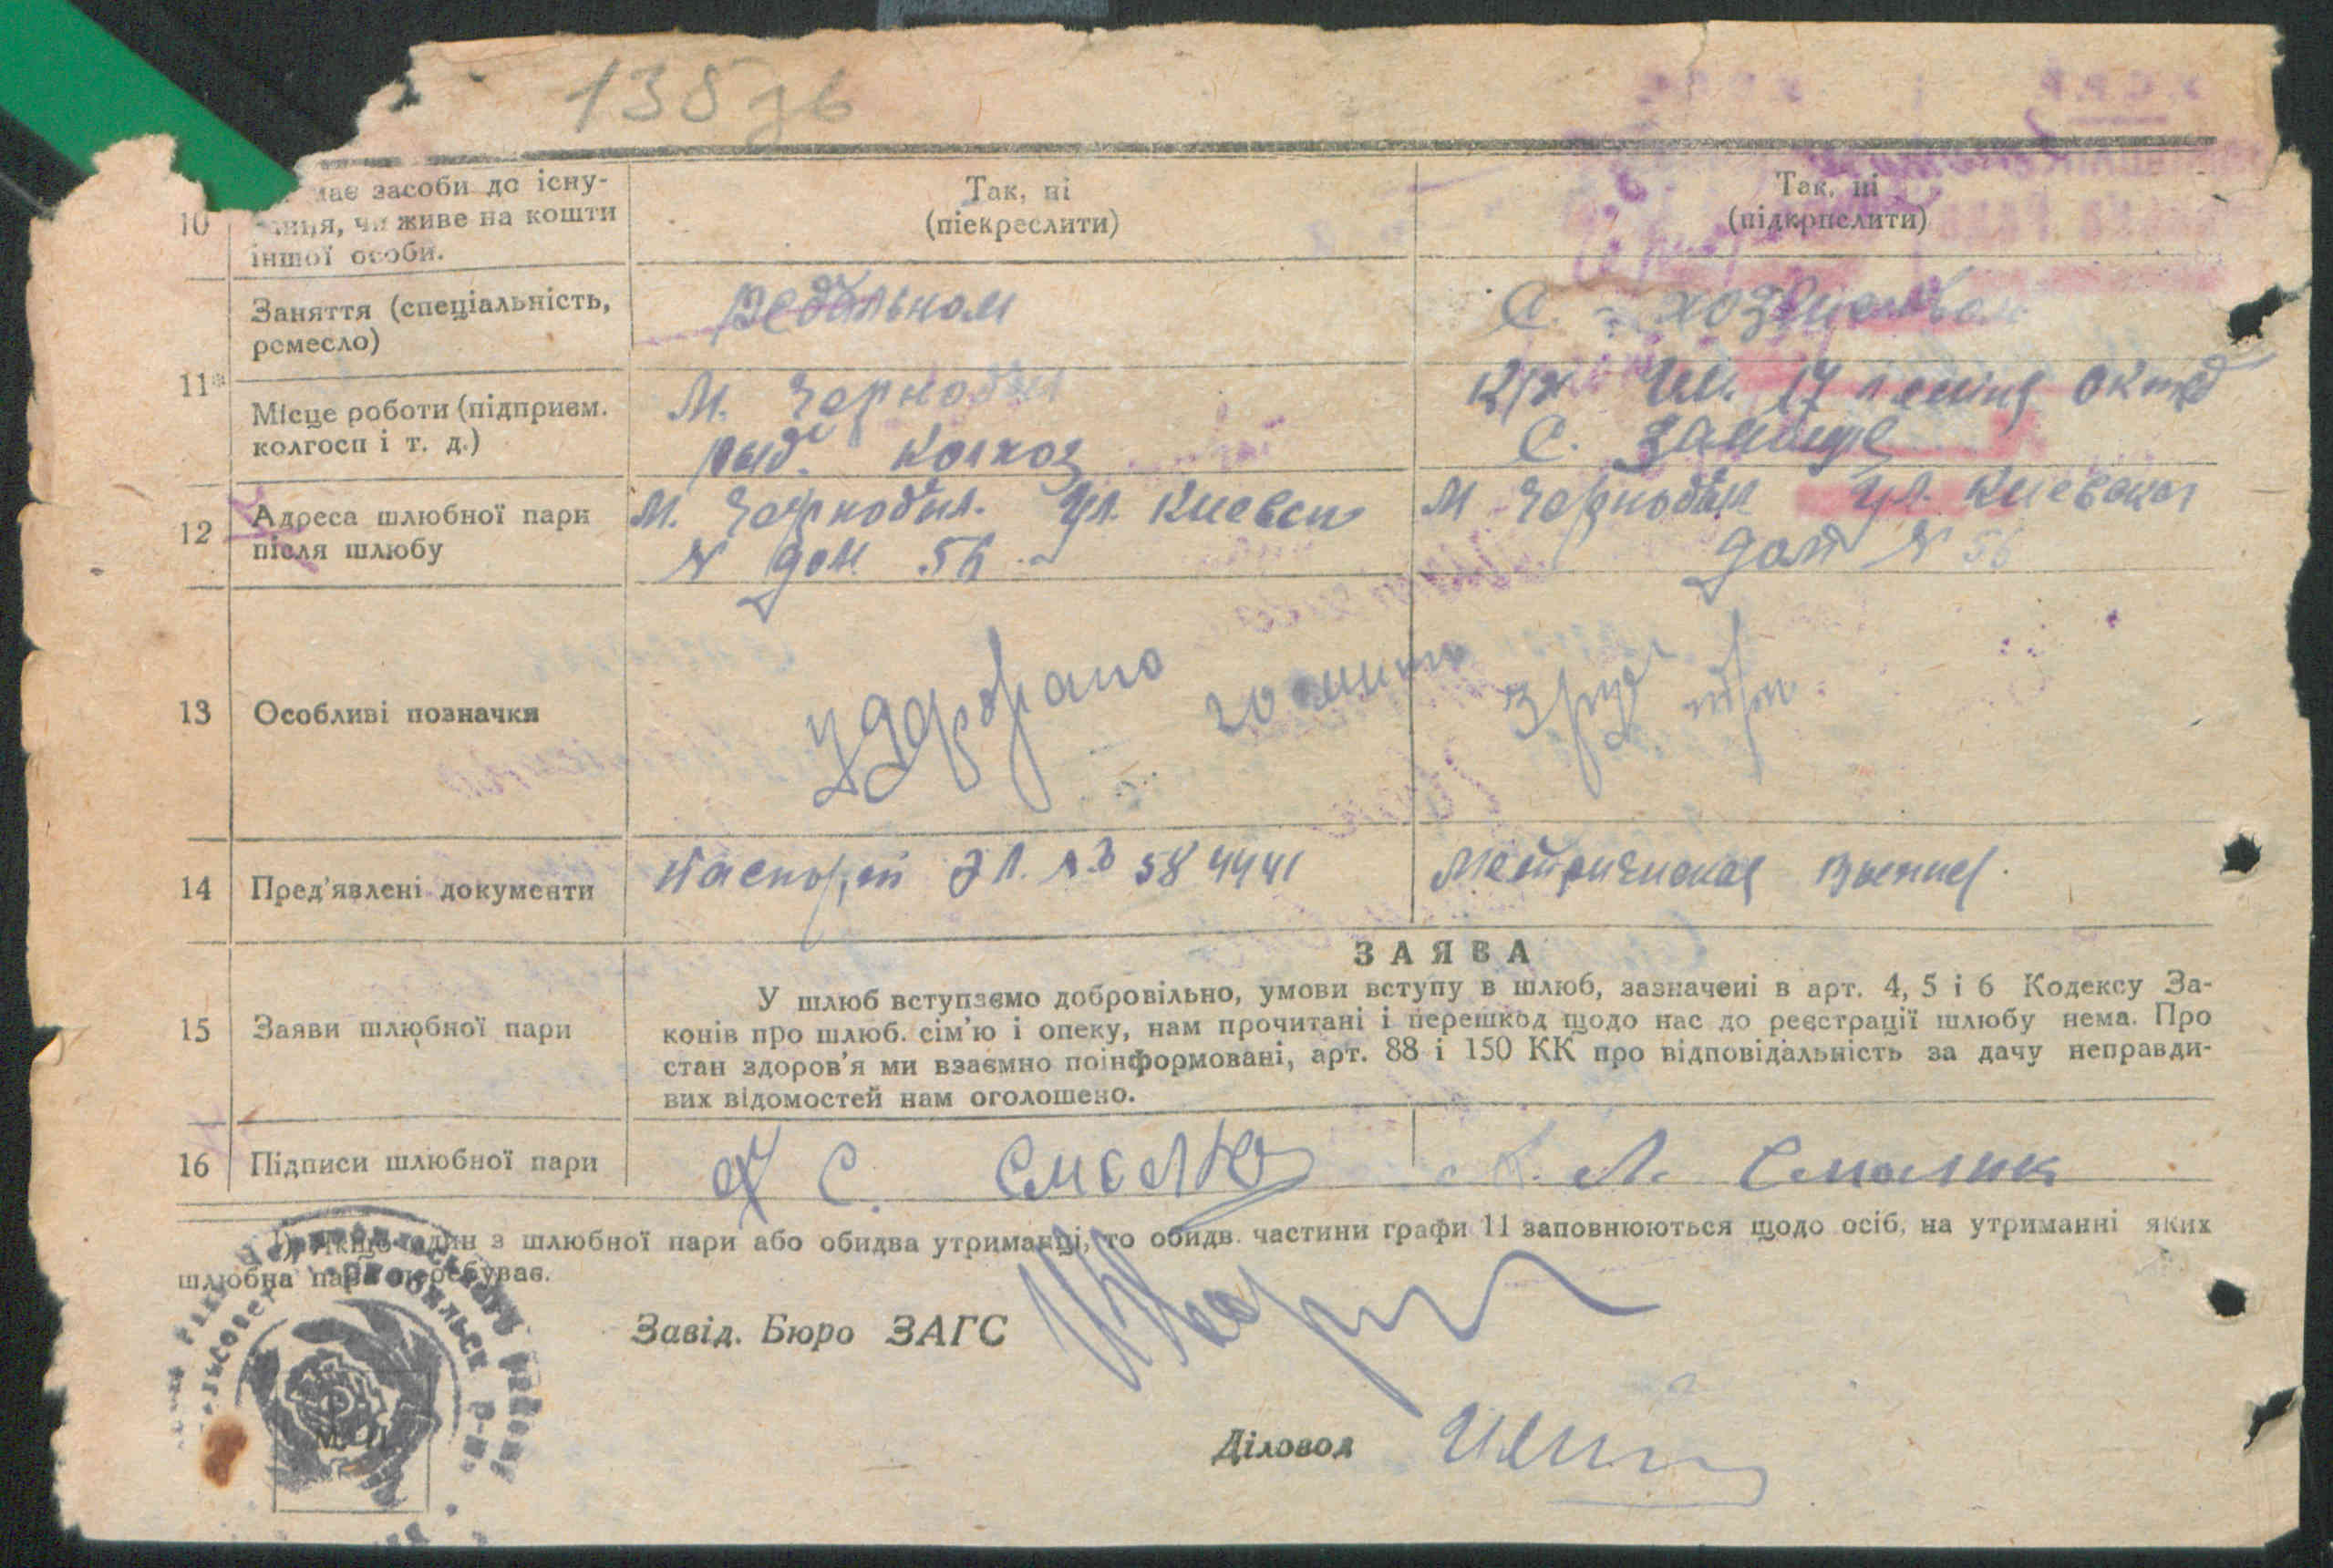 138 зв
10
має засоби до існу-
ння, чи живе на кошти
іншої особи.
Так, ні
(піекреслити)
Так, ні
(підкрпслити)
11
Заняття (спеціальність,
ремесло)
С. хозяйства
Місце роботи (підприєм.
колгосп і т. д.)
М. Чернобыл
рыб. колхоз
к/х Им. 17 летия октяб
С. Залище
12
Адреса шлюбної пари
після шлюбу
М. Чернобыл. Ул. Киевск
№ дом. 56
М Чернобыл Ул. Киевская
дом № 56
13
Особливі позначки
14
Пред'явлені документи
Паспорт № 584441
Метрическая выпись.
15
Заяви шлюбної пари
ЗАЯВА
У шлюб вступаємо добровільно, умови вступу в шлюб, зазначені в арт. 4, 5 і 6 Кодексу За-
конів про шлюб. сім'ю і опеку, нам прочитані і перешкод щодо нас до реєстрації шлюбу нема. Про
стан здоров'я ми взаємно поінформовані, арт. 88 і 150 КК про відповідальність за дачу неправди-
вих відомостей нам оголошено.
16
Підписи шлюбної пари
С.
Л. Смолик
1) Якщо один з шлюбної пари або обидва утриманці, то обидв. частини графи 11 заповнюються щодо осіб, на утриманні яких
шлюбна пара перебуває.
Завід. Бюро ЗАГС
Діловод
М. П.